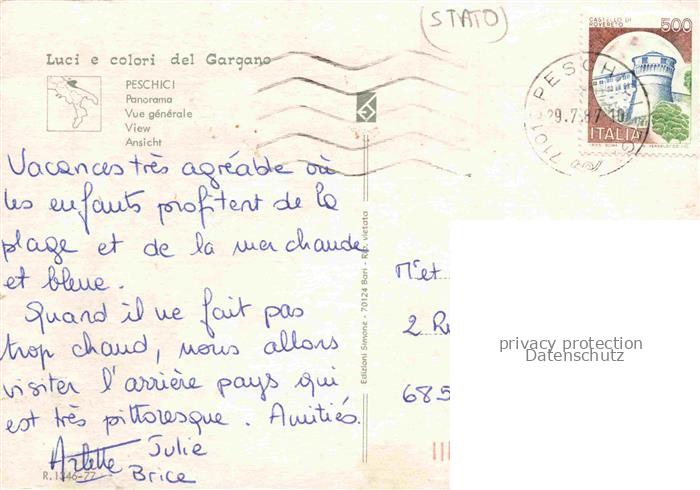 (STATO)
CASTELLO DI
ROVERETO
500
ITALIA
29.7.87
Luci e colori del Gargano
PESCHICI
Panorama
Vue générale
View
Ansicht
Vacances très agréable où
les enfants profitent de la
plage et de la mer chaude
et bleue.
Quand il ne fait pas
trop chaud, nous allons
visiter l'arrière pays qui
est très pittoresque. Amitiés.
Arlette Julie
Brice
R. 1346-77
Edizioni Simone - 70124 Bari - Rip. vietata
Mr et
2 Ru
685
privacy protection
Datenschutz